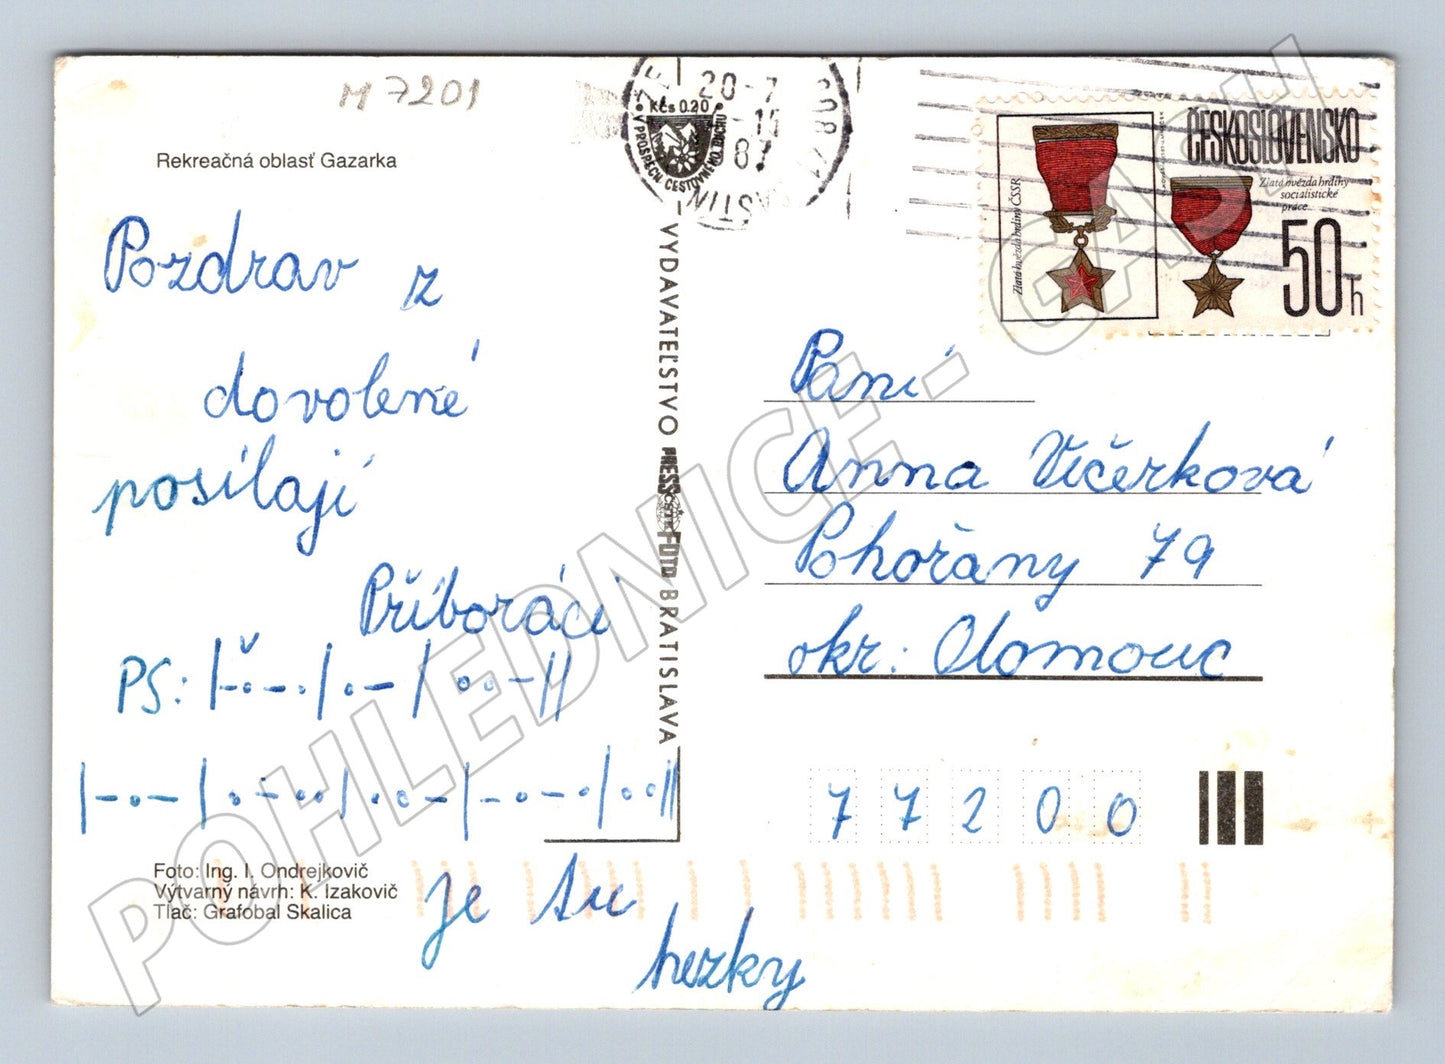 M 7201
Rekreačná oblasť Gazarka
Pozdrav z
dovolené
posílají
Příboráci
PS: |-.-.|.-|..-||
|-.-|.-..|..-|-.-.|..||
je tu
hezky
Foto: Ing. I. Ondrejkovič
Výtvarný návrh: K. Izakovič
Tlač: Grafobal Skalica
VYDAVATEĽSTVO PRESSFOTO BRATISLAVA
Kčs 0.20
V PROSPĚCH CESTOVNÉHO RUCHU
20-7
-15
87
908 71
ČESKOSLOVENSKO
Zlatá hvězda hrdiny
socialistické
práce
Zlatá hvězda hrdiny ČSSR
50h
Paní
Anna Večerková
Pohořany 79
okr: Olomouc
77200
POHLEDNICE - CASH